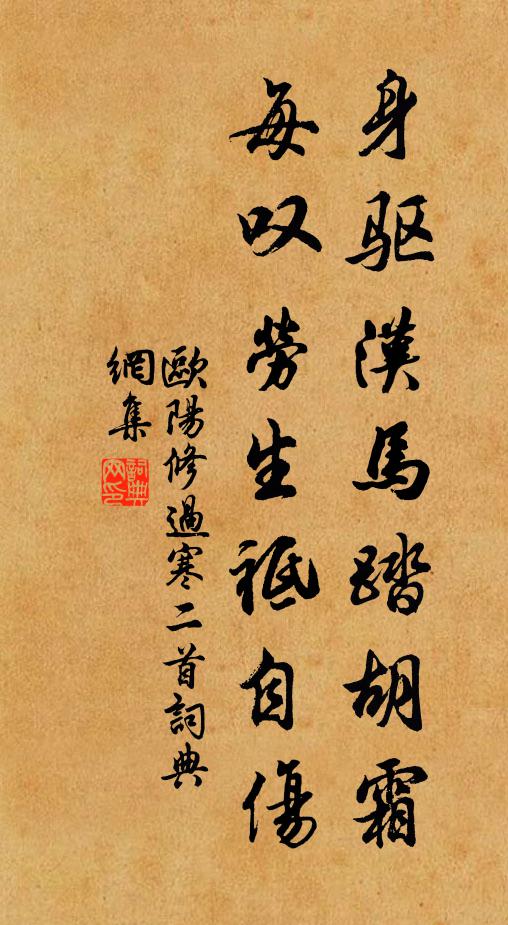 身驱漢馬踏胡霜
每叹勞生祗自傷
歐陽修過寒二首詞典
網集
詞典
网印